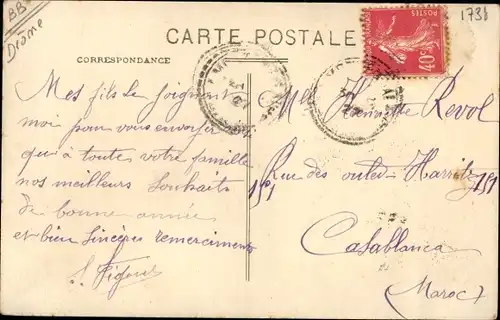 BB
Drôme
1738
CARTE POSTALE
CORRESPONDANCE
POSTES
40c
Mes fils se joignent à
moi pour vous envoyer
qui à toutes votre famille
nos meilleurs Souhaits
de bonne année
et bien sincères remerciements
Mlle Revol
Rue des 151
Casablanca
(Maroc)